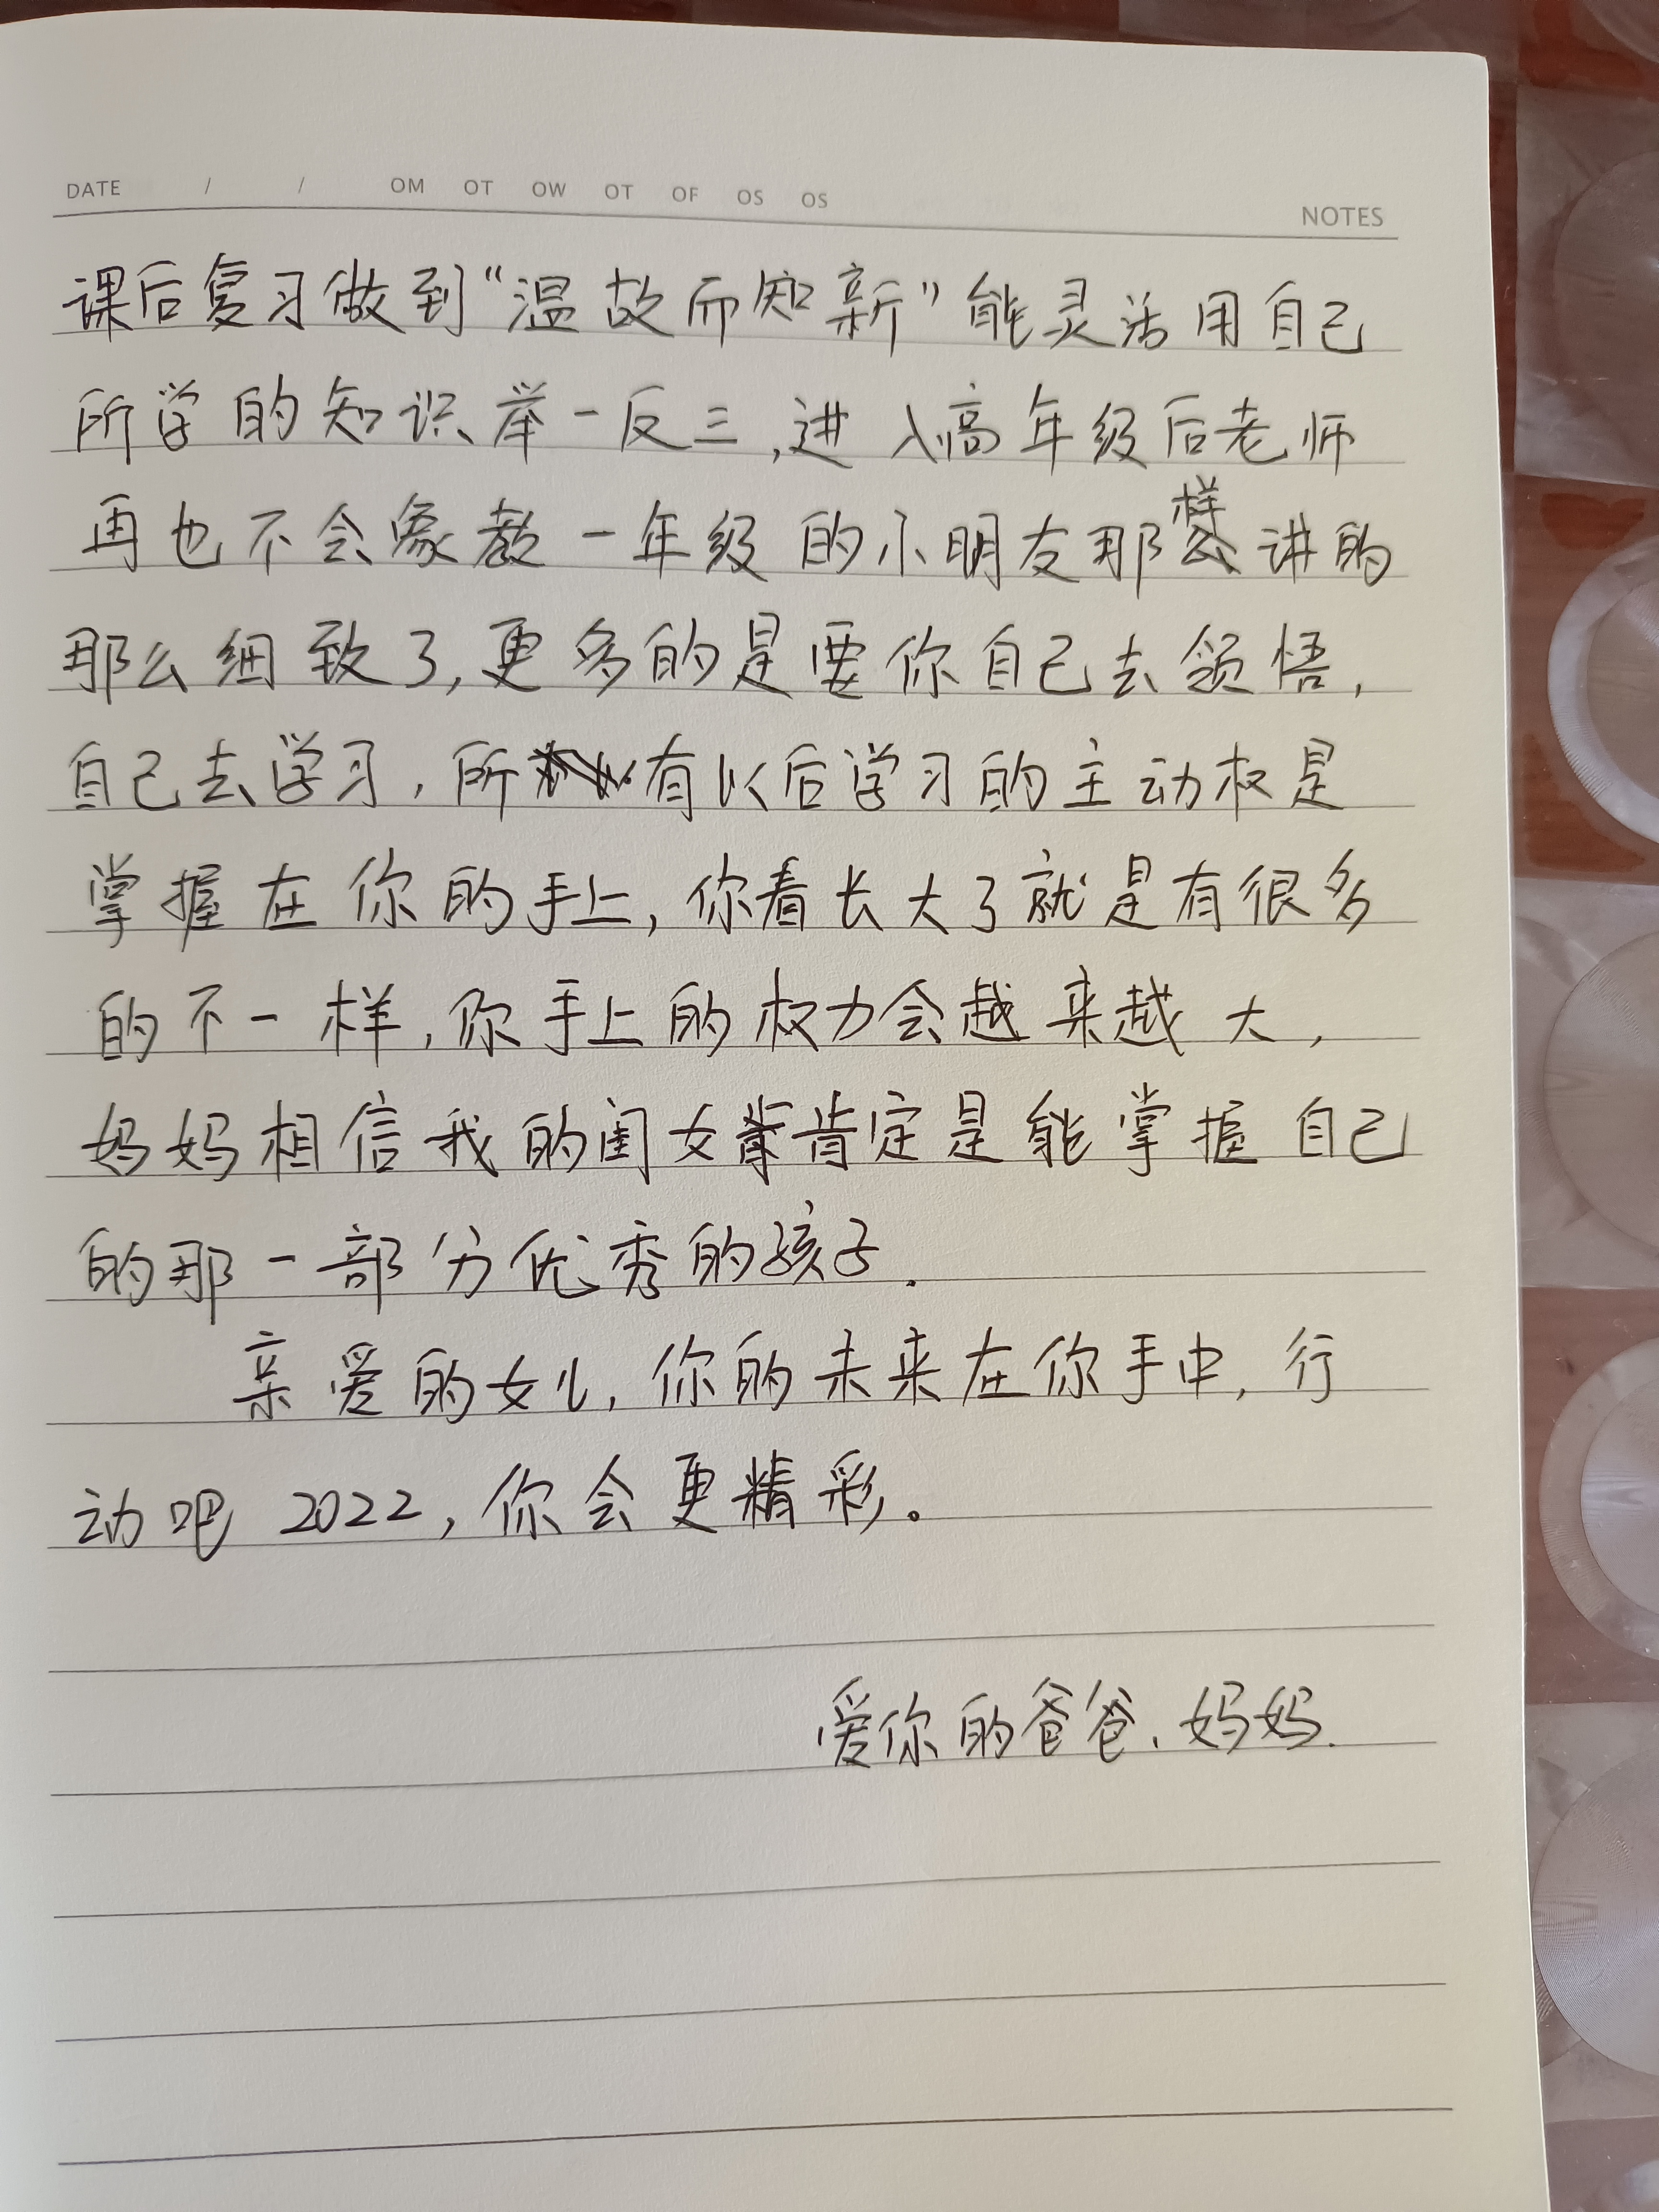 DATE / / OM OT OW OT OF OS OS
NOTES
课后复习做到“温故而知新”能灵活用自己
所学的知识举一反三,进入高年级后老师
再也不会象教一年级的小朋友那样讲的
那么细致了,更多的是要你自己去领悟,
自己去学习,所有以后学习的主动权是
掌握在你的手上,你看长大了就是有很多
的不一样,你手上的权力会越来越大,
妈妈相信我的闺女肯定是能掌握自己
的那一部分优秀的孩子.
亲爱的女儿,你的未来在你手中,行
动吧 2022,你会更精彩。
爱你的爸爸、妈妈.